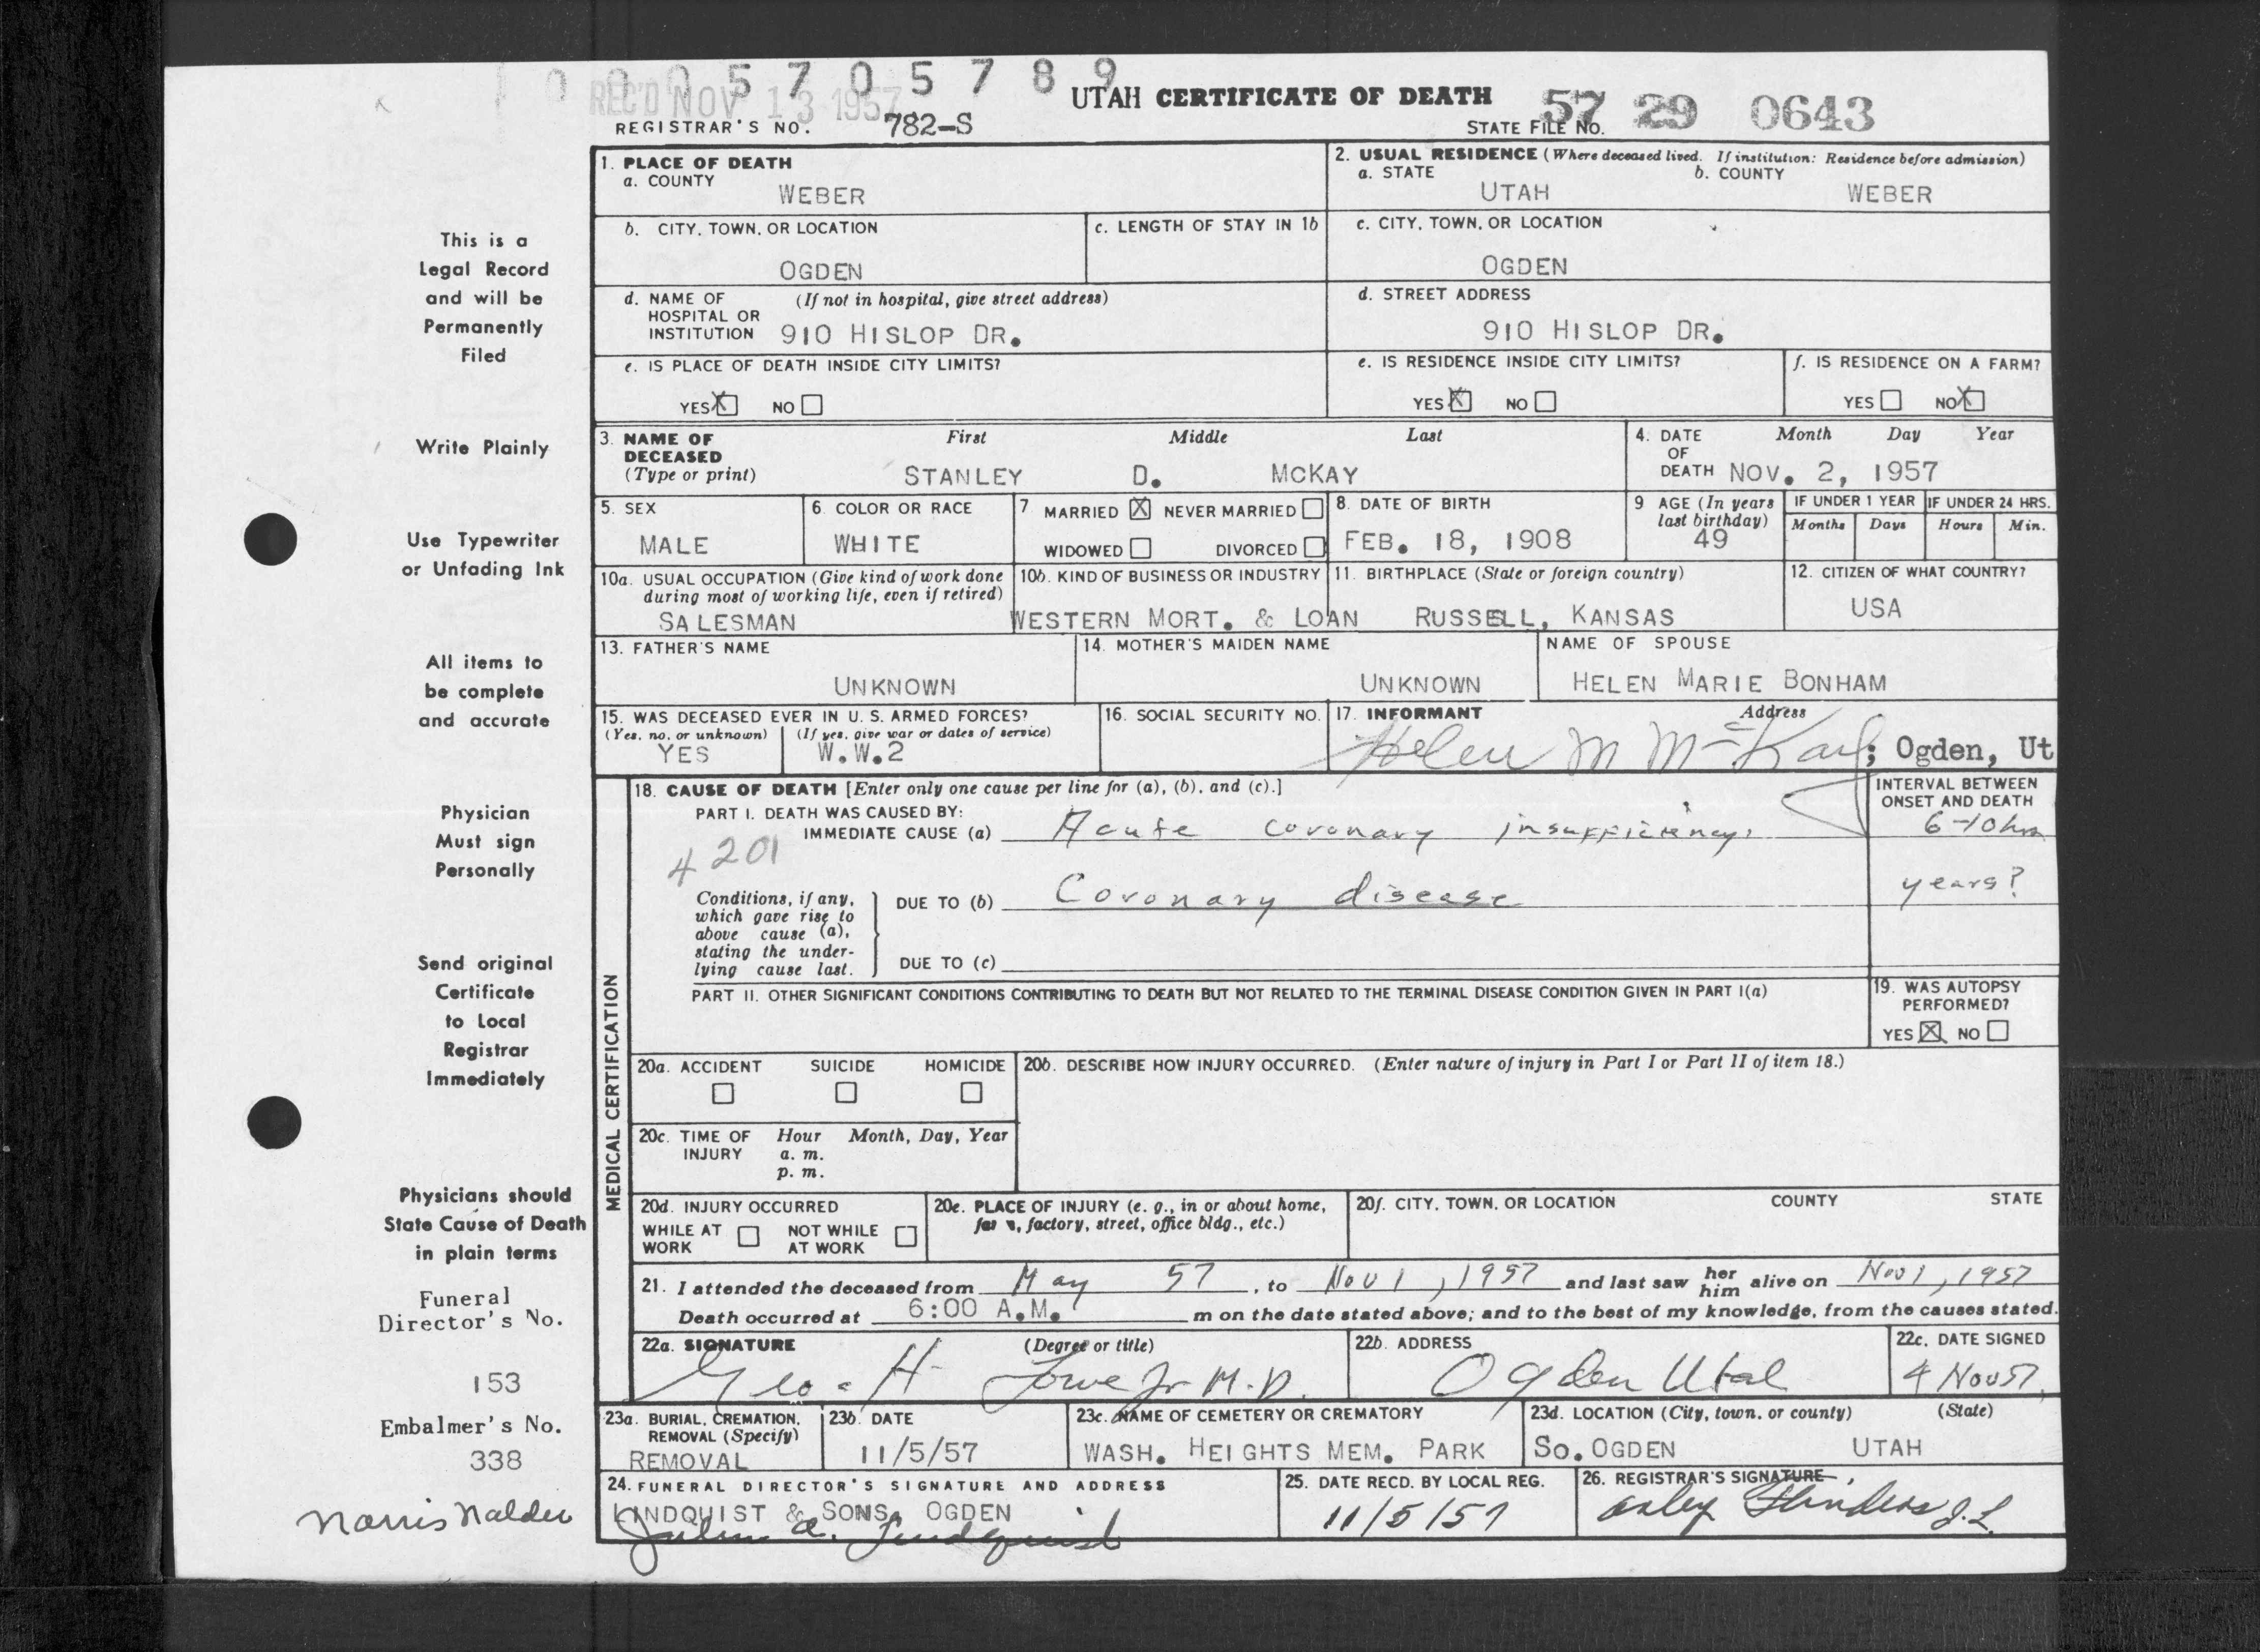 1 0 0 0 5 7 0 5 7 8 9
REC'D NOV 13 1957
UTAH CERTIFICATE OF DEATH
REGISTRAR'S NO. 782-S
STATE FILE NO. 57 29 0643
This is a
Legal Record
and will be
Permanently
Filed
Write Plainly
Use Typewriter
or Unfading Ink
All items to
be complete
and accurate
Physician
Must sign
Personally
Send original
Certificate
to Local
Registrar
Immediately
Physicians should
State Cause of Death
in plain terms
Funeral
Director's No.
153
Embalmer's No.
338
Norris Nalder
1. PLACE OF DEATH
a. COUNTY
WEBER
2. USUAL RESIDENCE (Where deceased lived. If institution: Residence before admission)
a. STATE b. COUNTY
UTAH WEBER
b. CITY, TOWN, OR LOCATION
OGDEN
c. LENGTH OF STAY IN 1b
c. CITY, TOWN, OR LOCATION
OGDEN
d. NAME OF (If not in hospital, give street address)
HOSPITAL OR
INSTITUTION 910 HISLOP DR.
d. STREET ADDRESS
910 HISLOP DR.
e. IS PLACE OF DEATH INSIDE CITY LIMITS?
YES X NO
e. IS RESIDENCE INSIDE CITY LIMITS?
YES X NO
f. IS RESIDENCE ON A FARM?
YES NO X
3. NAME OF First Middle Last
DECEASED
(Type or print) STANLEY D. MCKAY
4. DATE Month Day Year
OF
DEATH NOV. 2, 1957
5. SEX
MALE
6. COLOR OR RACE
WHITE
7 MARRIED X NEVER MARRIED
WIDOWED DIVORCED
8. DATE OF BIRTH
FEB. 18, 1908
9 AGE (In years
last birthday)
49
IF UNDER 1 YEAR IF UNDER 24 HRS.
Months Days Hours Min.
10a. USUAL OCCUPATION (Give kind of work done
during most of working life, even if retired)
SALESMAN
10b. KIND OF BUSINESS OR INDUSTRY
WESTERN MORT. & LOAN
11. BIRTHPLACE (State or foreign country)
RUSSELL, KANSAS
12. CITIZEN OF WHAT COUNTRY?
USA
13. FATHER'S NAME
UNKNOWN
14. MOTHER'S MAIDEN NAME
UNKNOWN
NAME OF SPOUSE
HELEN MARIE BONHAM
15. WAS DECEASED EVER IN U. S. ARMED FORCES?
(Yes, no, or unknown) (If yes, give war or dates of service)
YES W.W.2
16. SOCIAL SECURITY NO.
17. INFORMANT Address
Helen M McKay; Ogden, Ut
MEDICAL CERTIFICATION
18. CAUSE OF DEATH [Enter only one cause per line for (a), (b), and (c).]
PART I. DEATH WAS CAUSED BY:
IMMEDIATE CAUSE (a) Acute coronary insufficiency
INTERVAL BETWEEN
ONSET AND DEATH
6-10 hrs
4201
Conditions, if any,
which gave rise to
above cause (a),
stating the under-
lying cause last.
DUE TO (b) Coronary disease years?
DUE TO (c)
PART II. OTHER SIGNIFICANT CONDITIONS CONTRIBUTING TO DEATH BUT NOT RELATED TO THE TERMINAL DISEASE CONDITION GIVEN IN PART I(a)
19. WAS AUTOPSY
PERFORMED?
YES X NO
20a. ACCIDENT SUICIDE HOMICIDE
20b. DESCRIBE HOW INJURY OCCURRED. (Enter nature of injury in Part I or Part II of item 18.)
20c. TIME OF Hour Month, Day, Year
INJURY a. m.
p. m.
20d. INJURY OCCURRED
WHILE AT NOT WHILE
WORK AT WORK
20e. PLACE OF INJURY (e. g., in or about home,
farm, factory, street, office bldg., etc.)
20f. CITY, TOWN, OR LOCATION COUNTY STATE
21. I attended the deceased from May 57, to Nov 1, 1957 and last saw her him alive on Nov 1, 1957
Death occurred at 6:00 A.M. m on the date stated above; and to the best of my knowledge, from the causes stated.
22a. SIGNATURE (Degree or title)
Geo. H Lowe Jr M.D.
22b. ADDRESS
Ogden Utah
22c. DATE SIGNED
4 Nov 57
23a. BURIAL, CREMATION,
REMOVAL (Specify)
REMOVAL
23b. DATE
11/5/57
23c. NAME OF CEMETERY OR CREMATORY
WASH. HEIGHTS MEM. PARK
23d. LOCATION (City, town, or county) (State)
SO. OGDEN UTAH
24. FUNERAL DIRECTOR'S SIGNATURE AND ADDRESS
LINDQUIST & SONS, OGDEN
John A. Lindquist
25. DATE RECD. BY LOCAL REG.
11/5/57
26. REGISTRAR'S SIGNATURE
Flinders J.L.